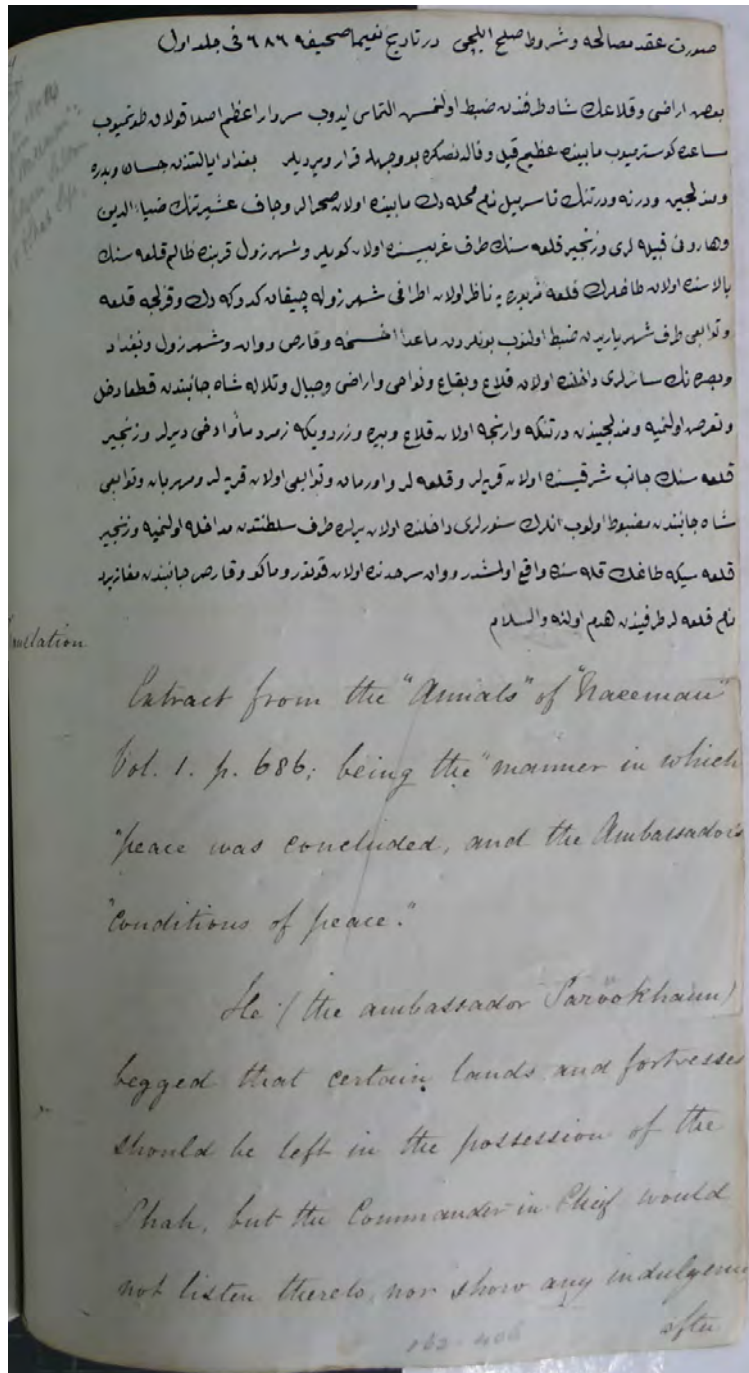 صورت عقد مصالحه و شروط صلح ایلچی در تاریخ نعیما صحیفه ٦٨٦ فی جلد اول
بعض اراضی و قلاعك شاه طرفندن ضبط اولنمسن التماس ایدوب سردار اعظم اصلا قولاق طوتمیوب
مساعده کوسترمیوب مابینده عظیم قیل و قالدنصکره بو وجهله قرار ویردیلر بغداد ایالتندن حسان و بدره
و مندلجین و درنه و درتنك تا سرمیل نام محله دك مابینده اولان صحرالر و جاف عشیرتنك ضیاء الدین
و هارونی قبیله لری و زنجیر قلعه سنك طرف غربیسنده اولان کویلر و شهرزول قربنده ظالم قلعه سنك
بالاسنده اولان طاغلرك قلعه مزبوره یه ناظر اولان اطرافی شهرزوله چیقان کدوکه دك و قزلجه قلعه
و توابعی طرف شهریاریدن ضبط اولنوب بونلردن ماعدا اخسخه و قارص و وان و شهرزول و بغداد
و بصره نك سائرلری داخلنده اولان قلاع و بقاع و نواحی و اراضی و جبال و تلاله شاه جانبندن قطعا دخل
و تعرض اولنمیه و مندلجیندن درتنکه وارنجه اولان قلاع و بیره و زردویکه زمرد ماوا دخی دیرلر و زنجیر
قلعه سنك جانب شرقیسنده اولان قریه لر و قلعه لر و اورمان و توابعی اولان قریه لر و مهربان و توابعی
شاه جانبندن مضبوط اولوب انلرك سنورلری داخلنده اولان یرلره طرف سلطنتدن مداخله اولنمیه و زنجیر
قلعه سیکه طاغك قله سنده واقع اولمشدر و وان سرحدنده اولان قوتور و ماکو و قارص جانبندن مغازبرد
نام قلعه لر طرفیندن هدم اولنه والسلام
nslation
Extract from the "Annals" of "Naeeman"
Vol. 1. p. 686; being the "manner in which
"peace was concluded, and the Ambassador's
"conditions of peace."
He (the ambassador Sarookhaun)
begged that certain lands and fortresses
should be left in the possession of the
Shah, but the Commander in Chief would
not listen thereto, nor show any indulgence
after